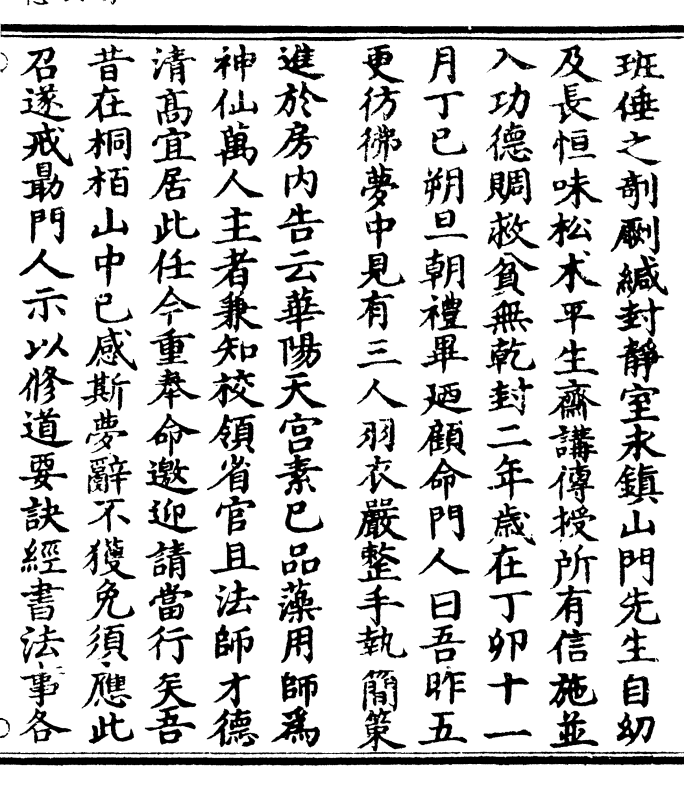 班倕之剞劂緘封靜室永鎮山門先生自幼
及長恒味松朮平生齋講傳授所有信施並
入功德賙救貧無乾封二年歲在丁卯十一
月丁巳朔旦朝禮畢廼顧命門人曰吾昨五
更彷彿夢中見有三人羽衣嚴整手執簡策
進於房內告云華陽天宮素已品藻用師為
神仙萬人主者兼知校領省官且法師才德
清高宜居此任今重奉命邀迎請當行矣吾
昔在桐栢山中已感斯夢辭不獲免須應此
召遂戒勗門人示以修道要訣經書法事各